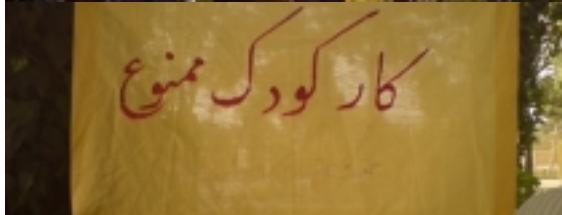 کار کودک ممنوع